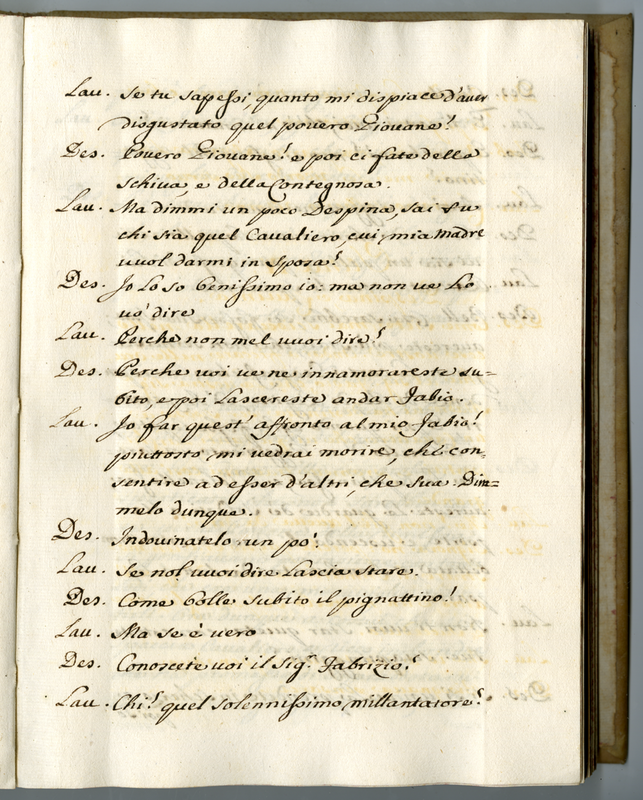 Lau. Se tu sapessi, quanto mi dispiace d'aver
disgustato quel povero Giovane!
Des. Povero Giovane! e poi ci fate della
schiva, e della Contegnosa.
Lau. Ma dimmi un poco Despina, sai tu
chi sia quel Cavaliero, cui mia Madre
vuol darmi in Sposa?
Des. Jo Lo So benissimo io: ma non ve Lo
vo' dire
Lau. Perche non mel vuoi dire?
Des. Perche voi ve ne innamorareste su=
bito, e poi Lascereste andar Fabio.
Lau. Jo far quest' affronto al mio Fabio!
piuttosto mi vedrai morire, che con=
sentire ad esser d'altri, che sua. Dim=
melo dunque.
Des. Indovinatelo un po'.
Lau. Se nol vuoi dire Lascia stare.
Des. Come bolle subito il pignattino!
Lau. Ma se è vero
Des. Conoscete voi il Sig.r Fabrizio?
Lau. Chi? quel Solennissimo millantatore?